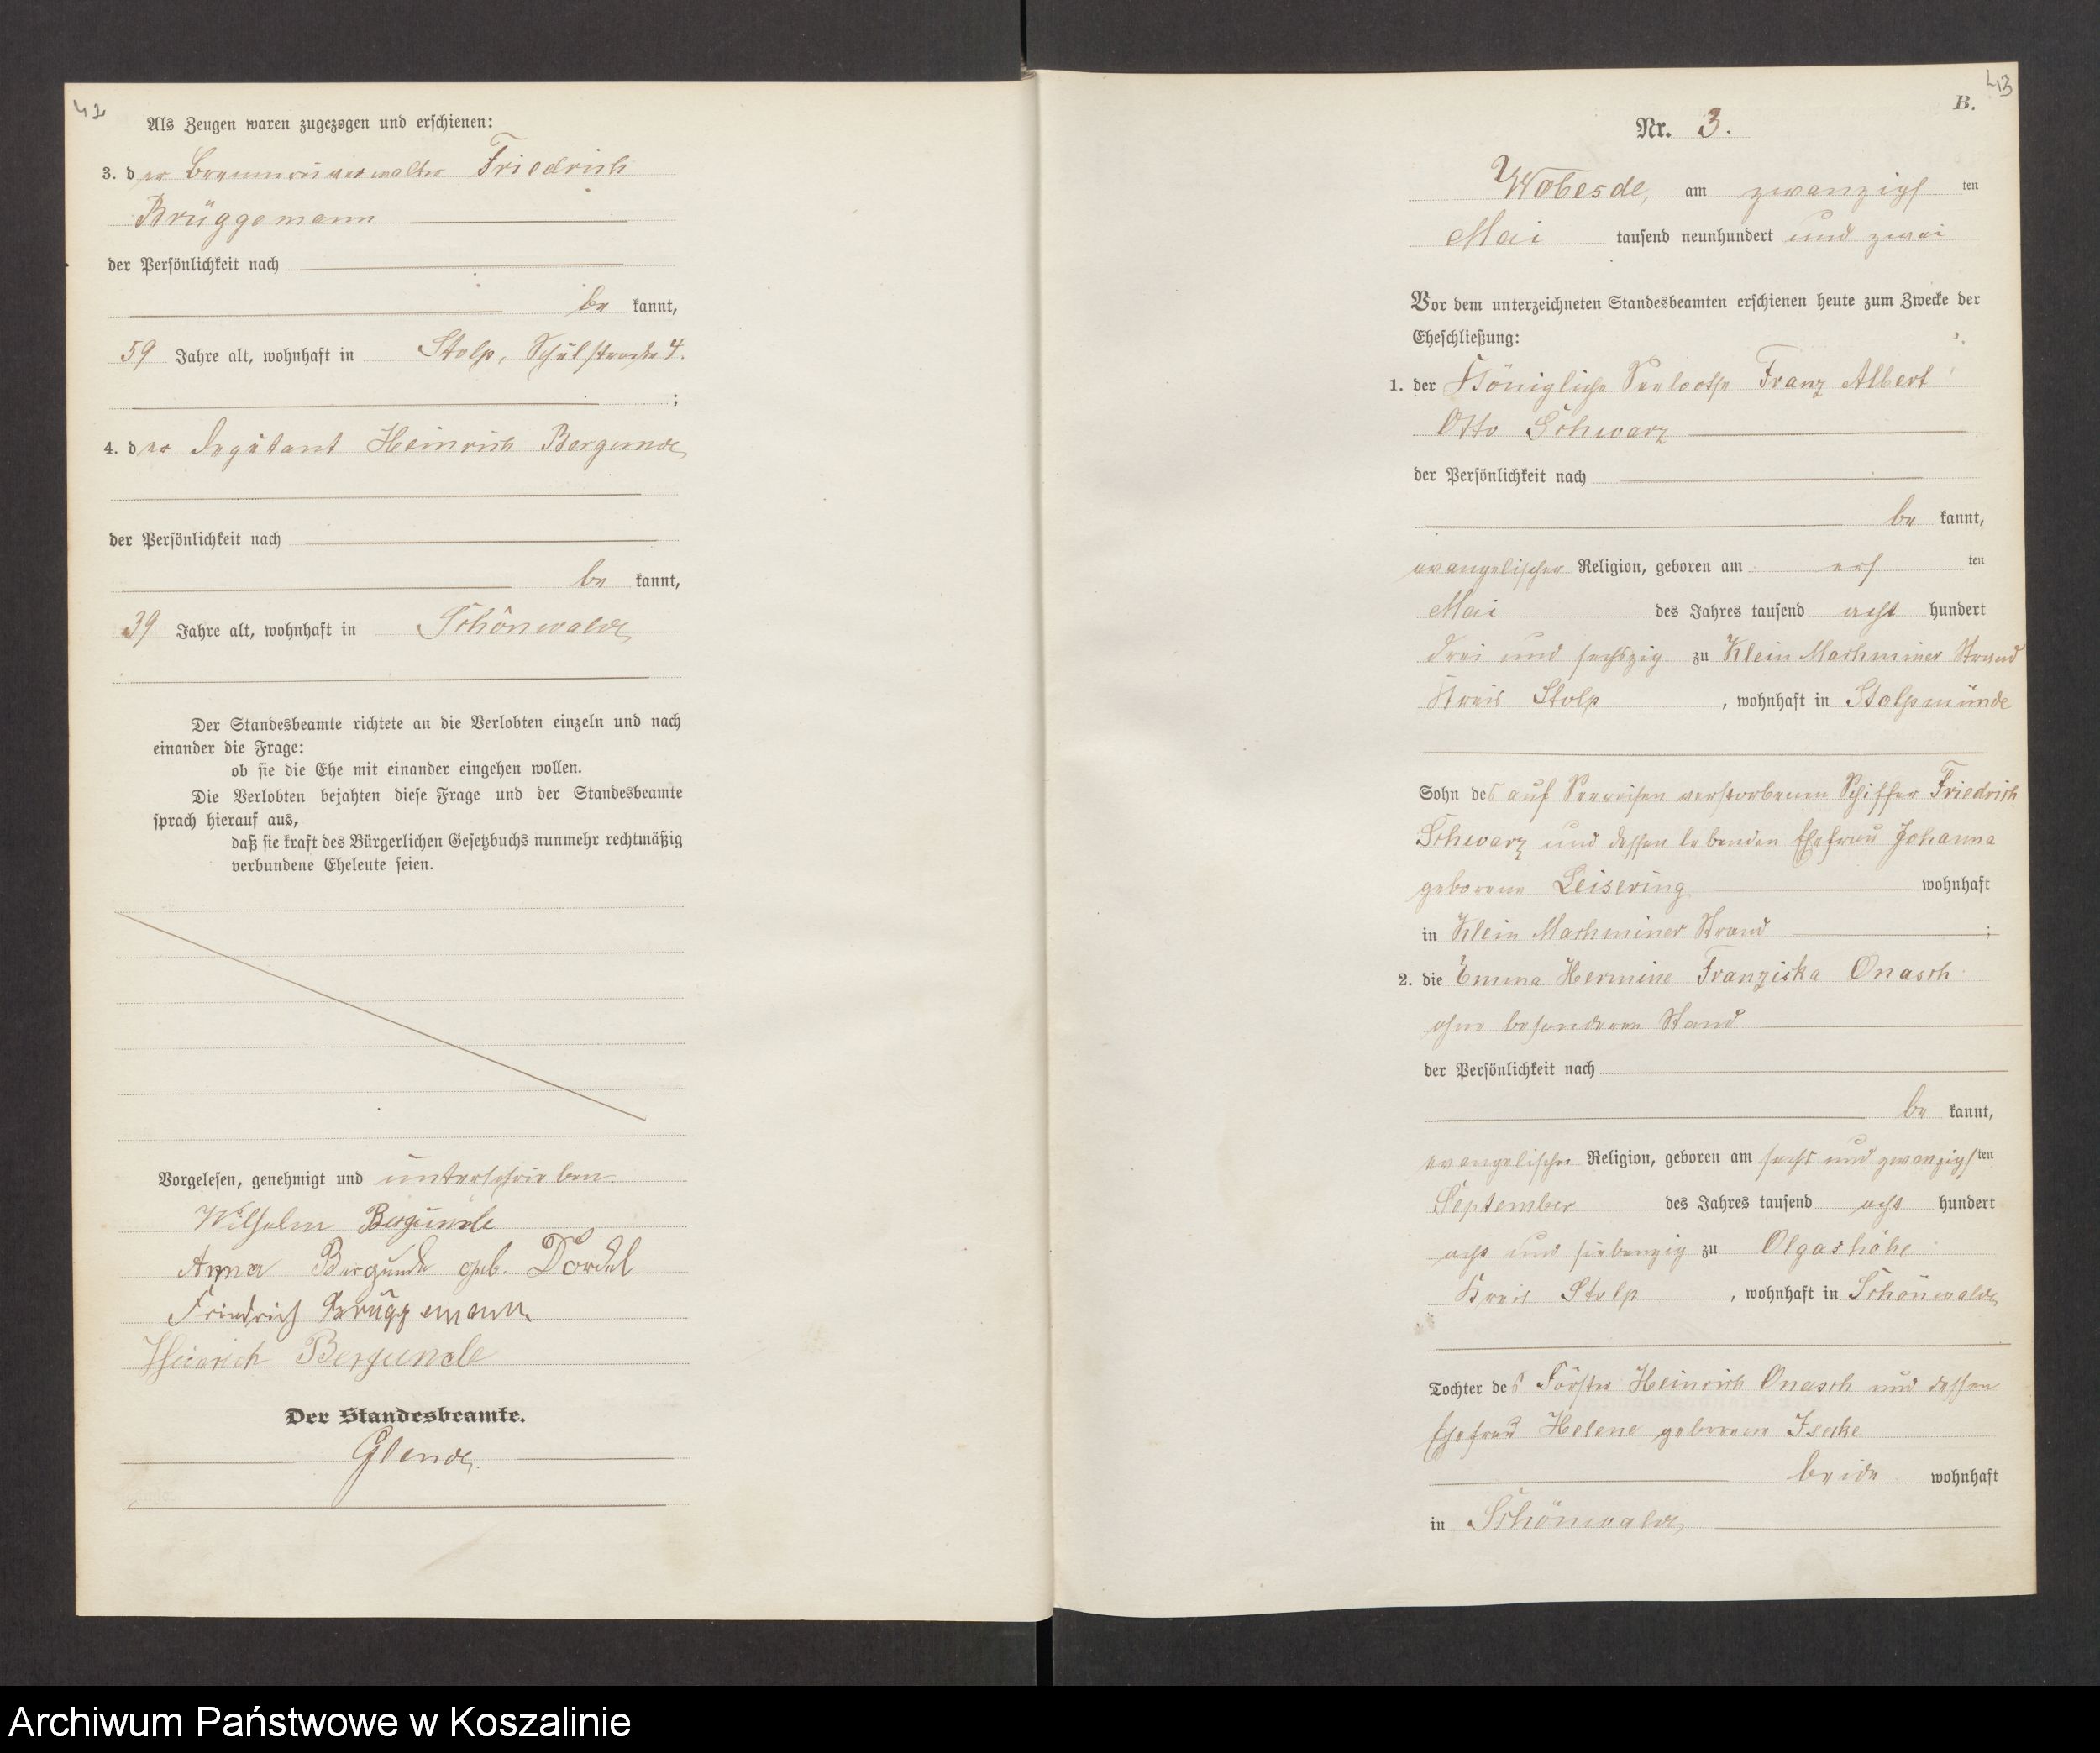 42
Als Zeugen waren zugezogen und erschienen:
3. der Brennereiverwalter Friedrich
Brüggemann
der Persönlichkeit nach
be kannt,
59 Jahre alt, wohnhaft in Stolp, Schulstraße 4.
;
4. der Deputant Heinrich Bergunde
der Persönlichkeit nach
be kannt,
39 Jahre alt, wohnhaft in Schönwalde
Der Standesbeamte richtete an die Verlobten einzeln und nach
einander die Frage:
ob sie die Ehe mit einander eingehen wollen.
Die Verlobten bejahten diese Frage und der Standesbeamte
sprach hierauf aus,
daß sie kraft des Bürgerlichen Gesetzbuchs nunmehr rechtmäßig
verbundene Eheleute seien.
Vorgelesen, genehmigt und unterschrieben.
Wilhelm Bergunde
Anna Bergunde geb. Dordel
Friedrich Brüggemann
Heinrich Bergunde
Der Standesbeamte.
Glende.
43
B.
Nr. 3.
Wobesde, am zwanzigs ten
Mai tausend neunhundert und zwei
Vor dem unterzeichneten Standesbeamten erschienen heute zum Zwecke der
Eheschließung:
1. der Königliche Seelootse Franz Albert
Otto Schwarz
der Persönlichkeit nach
be kannt,
evangelischer Religion, geboren am ers ten
Mai des Jahres tausend acht hundert
drei und sechszig zu Klein Machminer Strand
Kreis Stolp , wohnhaft in Stolpmünde
Sohn des auf Seereisen verstorbenen Schiffer Friedrich
Schwarz und dessen lebenden Ehefrau Johanna
geborene Leisering wohnhaft
in Klein Machminer Strand ;
2. die Emma Hermine Franziska Onasch
ohne besonderen Stand
der Persönlichkeit nach
be kannt,
evangelischer Religion, geboren am sechs und zwanzigs ten
September des Jahres tausend acht hundert
acht und siebenzig zu Olgashöhe
Kreis Stolp , wohnhaft in Schönwalde
Tochter des Förster Heinrich Onasch und dessen
Ehefrau Helene geborene Isecke
beide wohnhaft
in Schönwalde
Archiwum Państwowe w Koszalinie